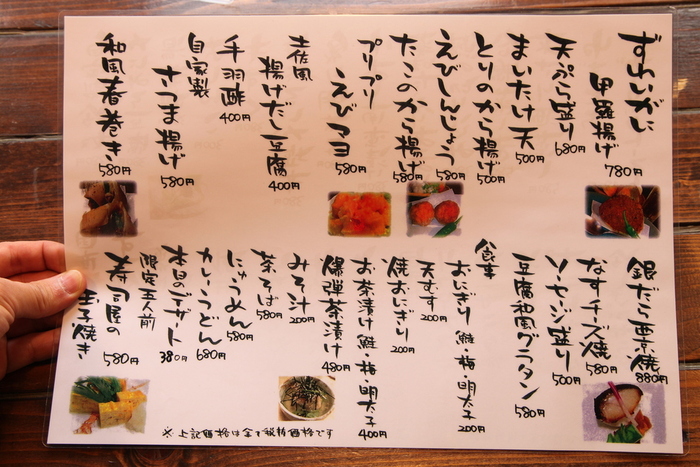 ずわいがに
甲羅揚げ
780円
天ぷら盛り
680円
まいたけ天
500円
とりのから揚げ
500円
えびしんじょう
580円
たこのから揚げ
580円
プリプリ
えびマヨ
580円
土佐風
揚げだし豆腐
400円
手羽酢
400円
自家製
さつま揚げ
580円
和風春巻き
580円
銀だら西京焼
880円
なすチーズ焼
580円
ソーセージ盛り
500円
豆腐和風グラタン
580円
食事
おにぎり 鮭・梅・明太子
200円
天むす
200円
焼おにぎり
200円
お茶漬け 鮭・梅・明太子
400円
爆弾茶漬け
480円
みそ汁
200円
茶そば
580円
にゅうめん
580円
カレーうどん
680円
本日のデザート
380円
限定五人前
寿司屋の
玉子焼き
580円
※上記価格は全て税抜価格です